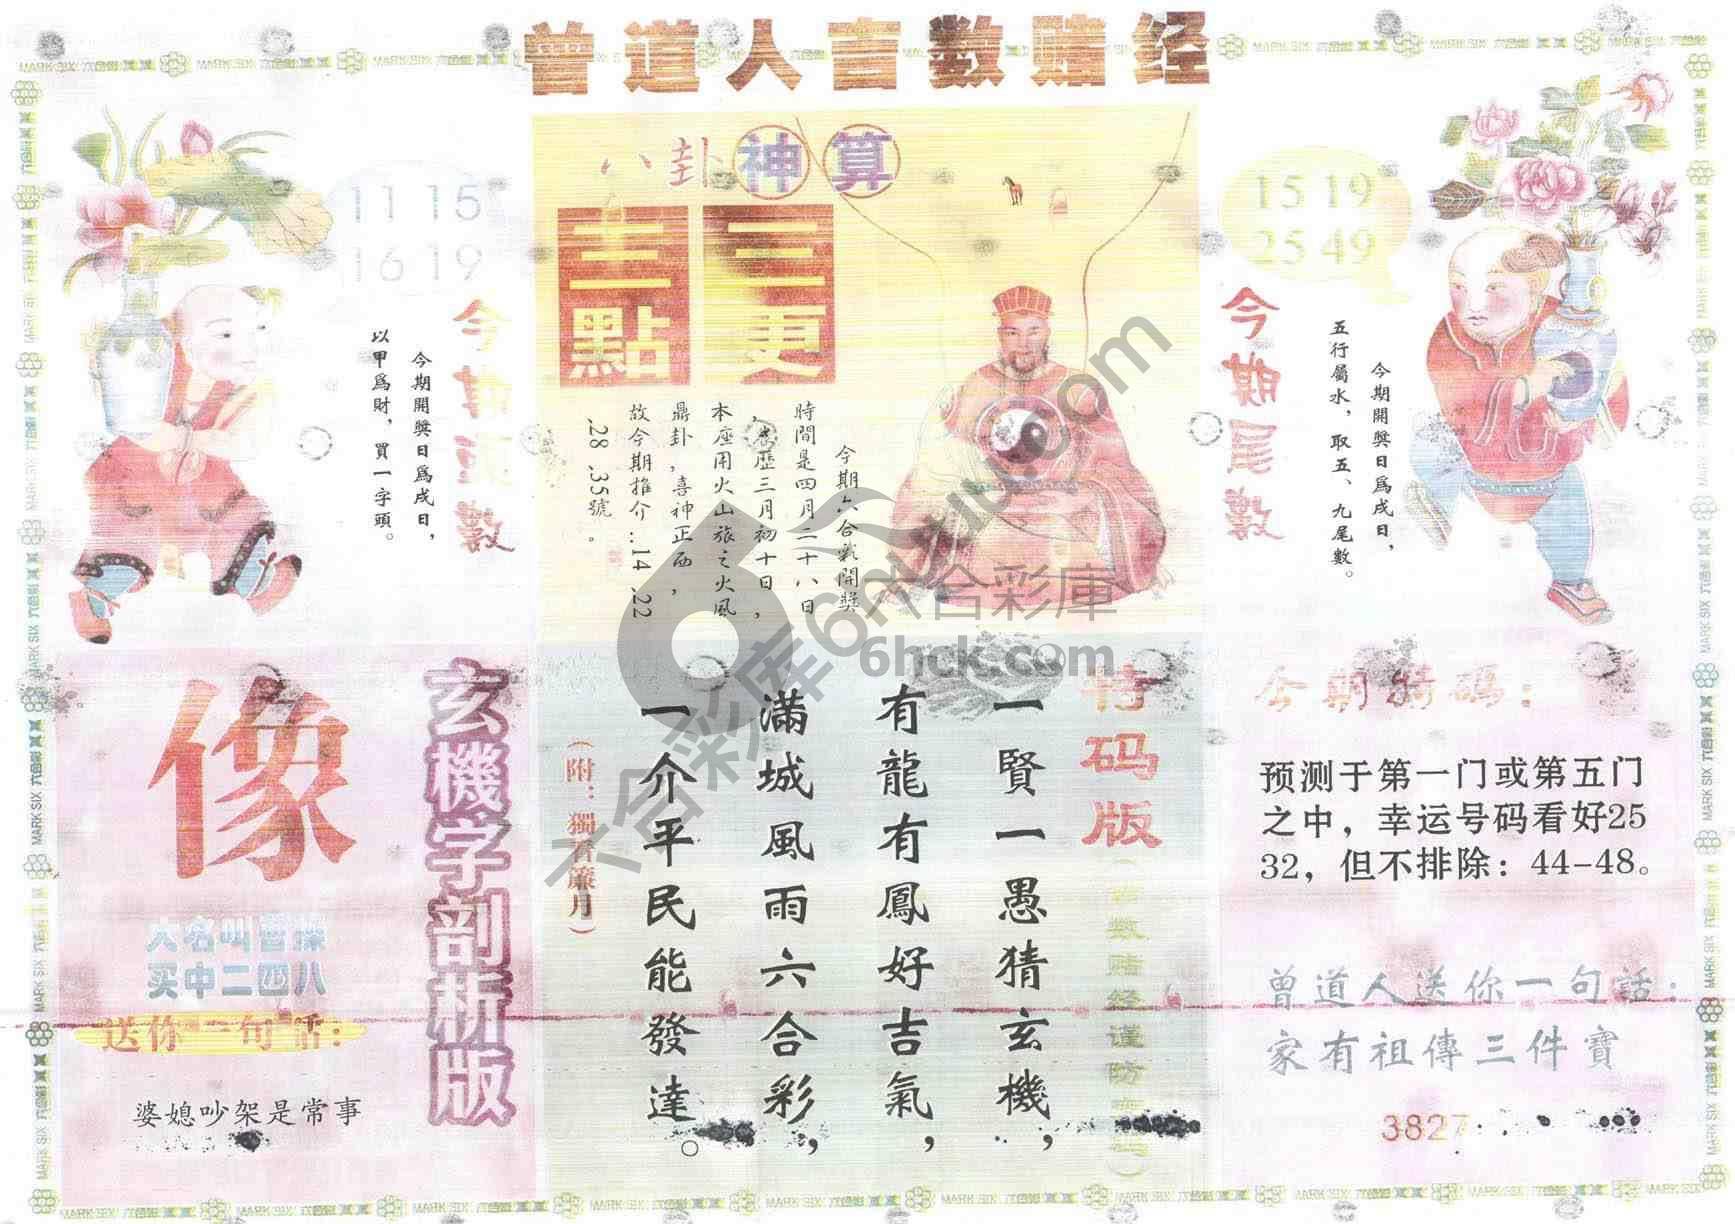 曾道人言数赌经
八卦神算
11 15
16 19
15 19
25 49
三更
三點
今期頭數
今期開獎日為戌日，
以甲為財，買一字頭。
今期六合彩開獎
時間是四月二十八日
本座用火山旅之火風
鼎卦，喜神正西，
故今期推介..14.22
.28.35號。
今期尾數
今期開獎日為戌日，
五行屬水，取五、九尾數。
六合彩庫
6hck.com
玄機字剖析版
像
大名叫曹操
买中二四八
送你一句話：
婆媳吵架是常事
特码版
一賢一愚猜玄機，
有龍有鳳好吉氣，
滿城風雨六合彩，
一介平民能發達。
（附：獨看簾月）
今期特碼：
预测于第一门或第五门
之中，幸运号码看好25
32，但不排除：44-48。
曾道人送你一句話：
家有祖傳三件寶
3827